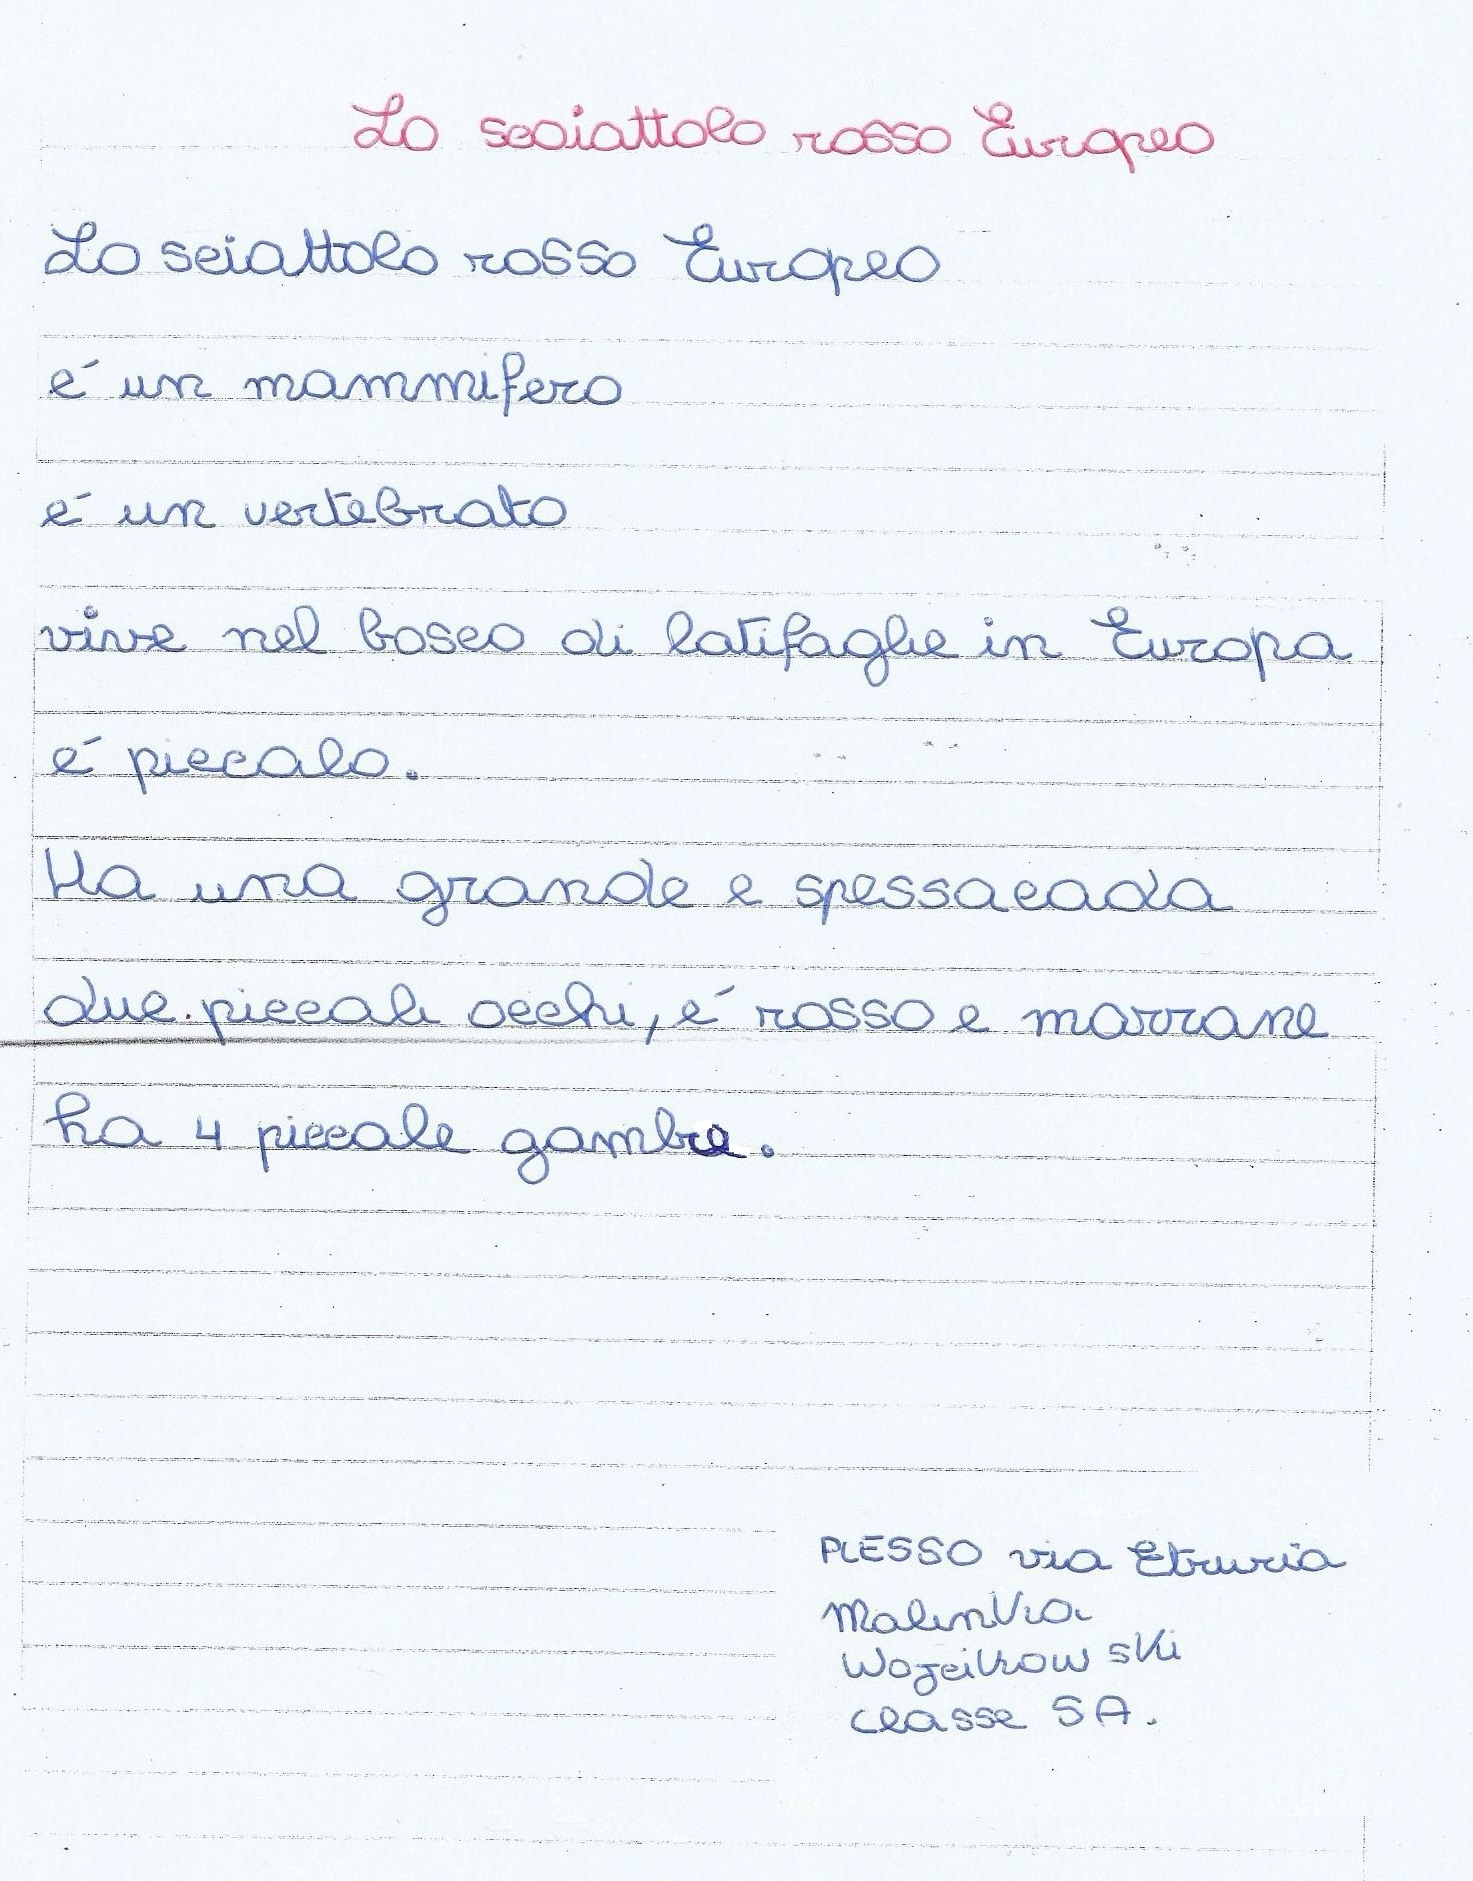 Lo scoiattolo rosso Europeo
Lo sciattolo rosso Europeo
é un mammifero
é un vertebrato
vive nel bosco di latifaglie in Europa
é piccolo.
Ha una grande e spessa coda
due piccoli occhi, é rosso e marrone
ha 4 piccole gambe.
PLESSO via Etruria
Malinka
Wojcikowski
classe 5A.